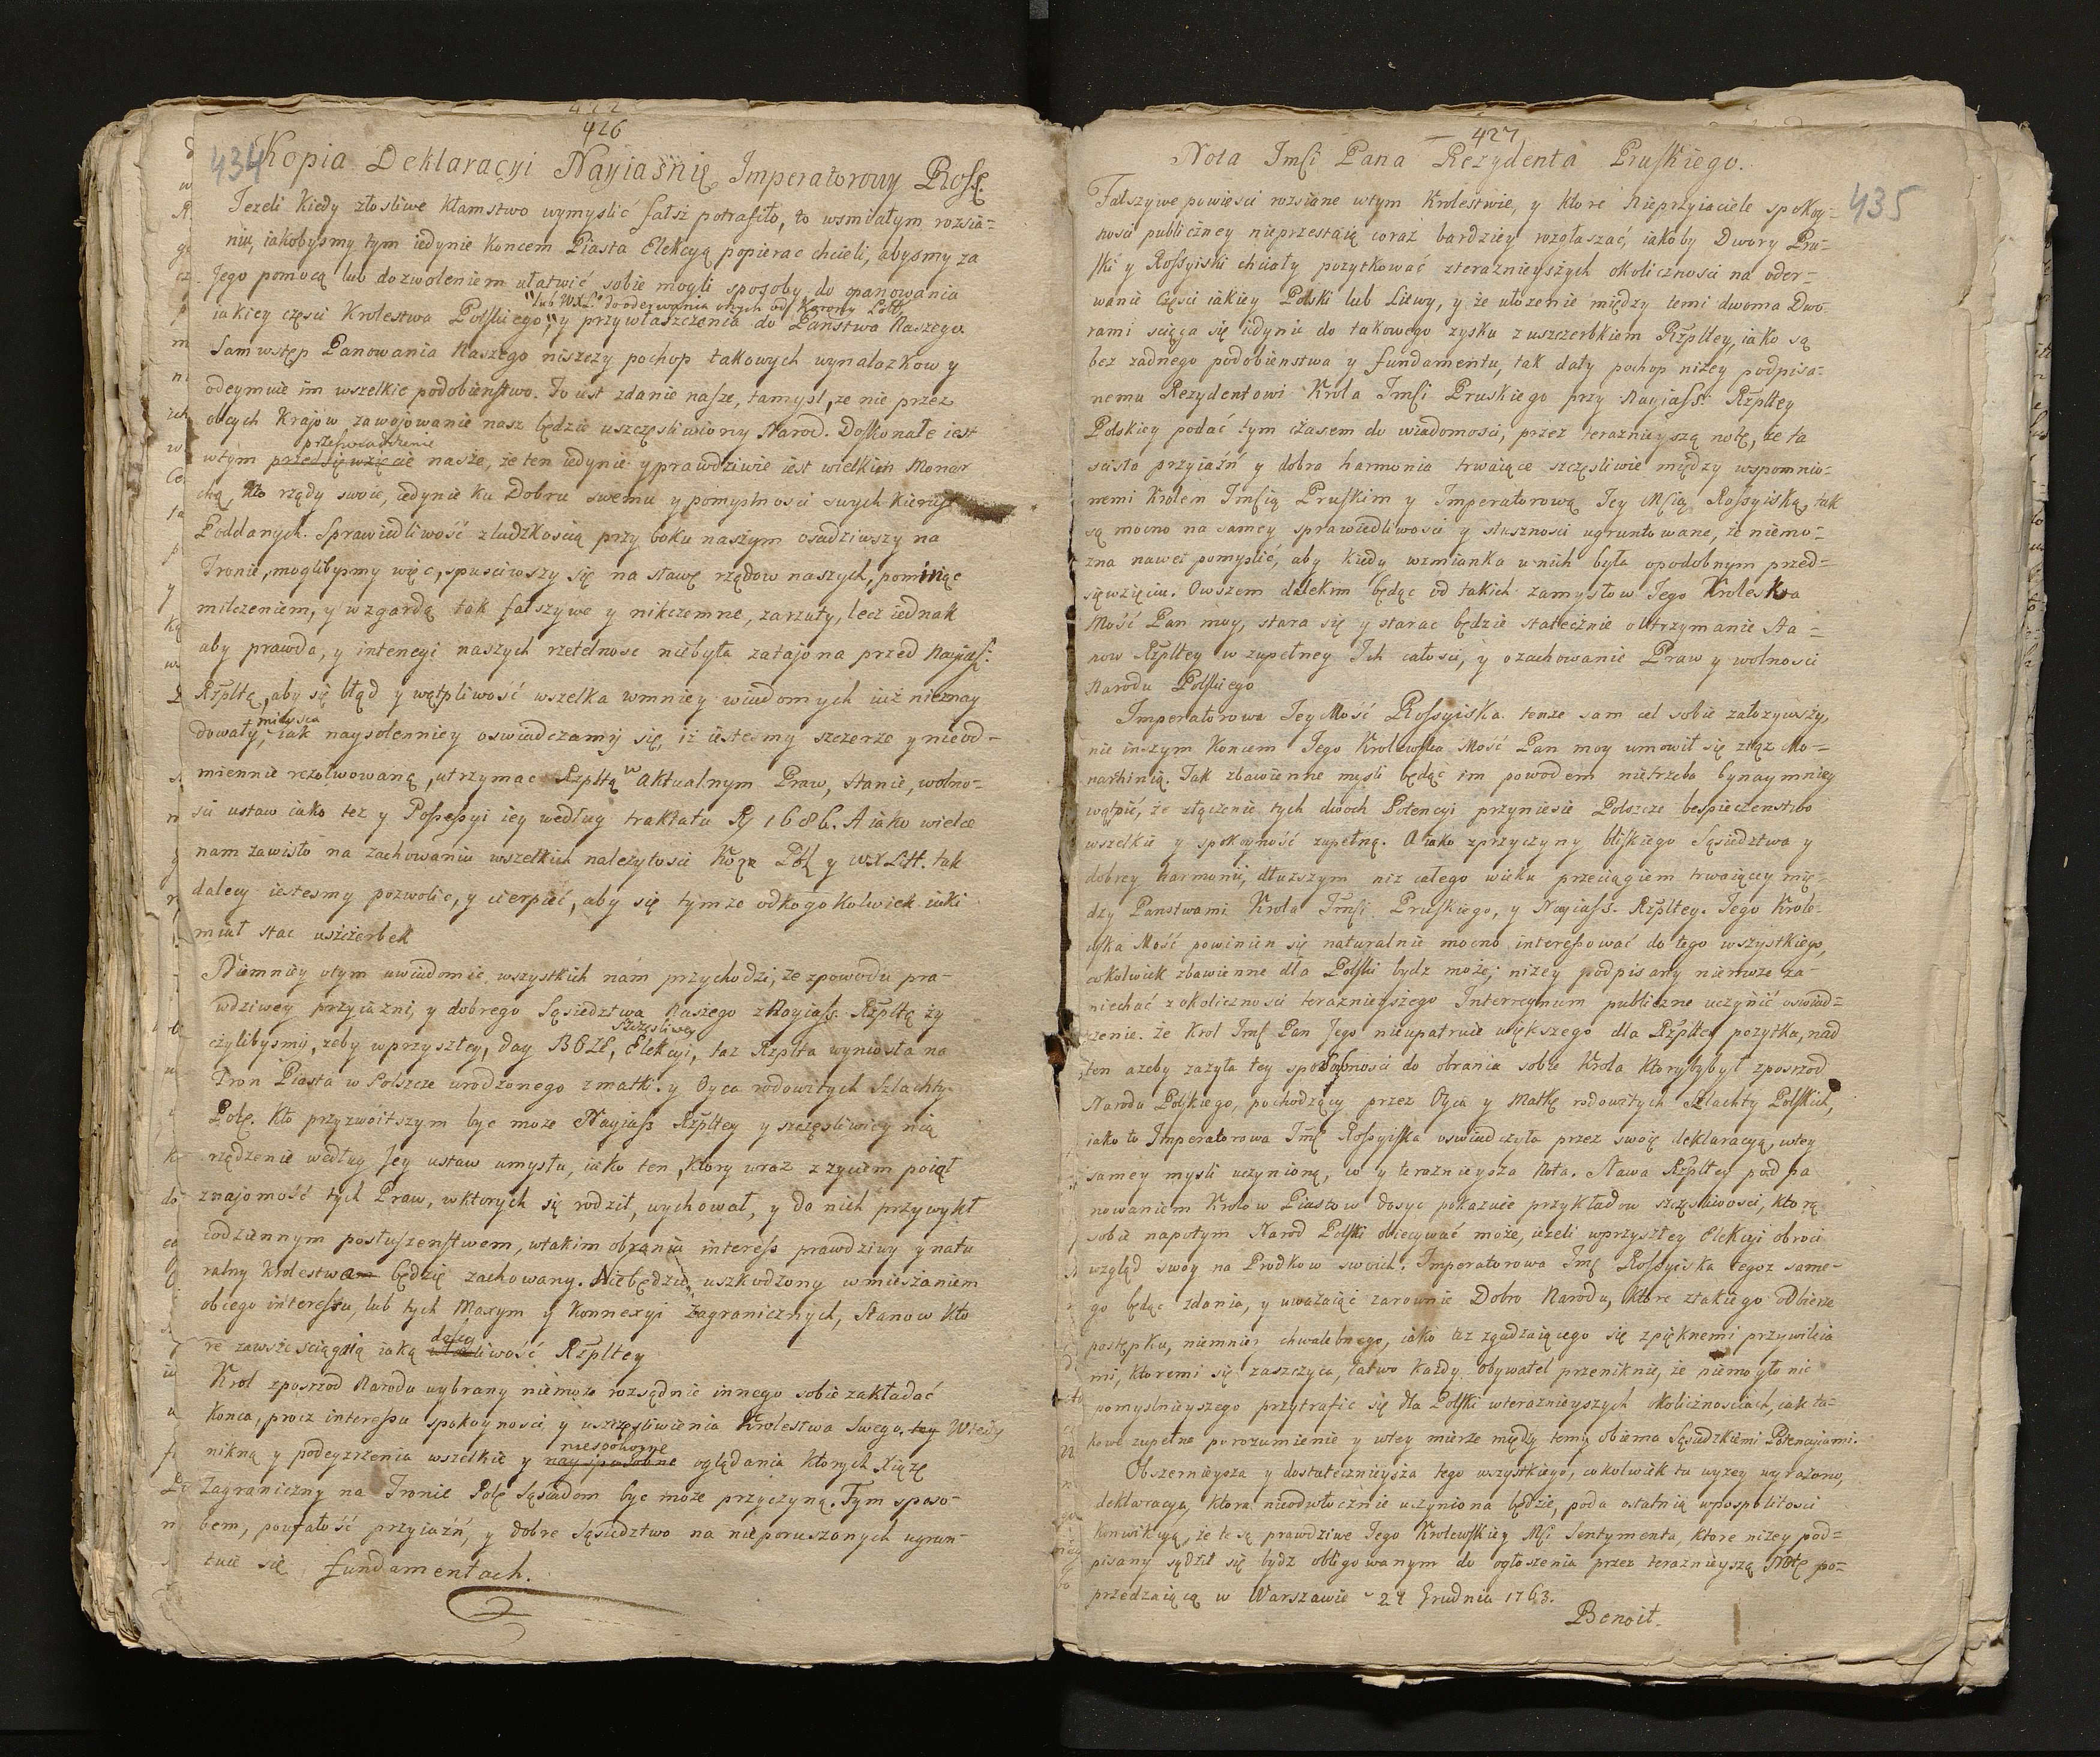 426
434
Kopia Deklaracyi Nayiaśnię Imperatorowy Roſſ.
Jezeli kiedy złosliwe kłamstwo wymyslić fałsz potrafiło, to w smiałym rozsia=
niu, iakobysmy tym iedynie koncem Piasta Elekcyą popierac chcieli, abysmy za
Jego pomocą lub dozwoleniem ułatwić sobie mogli sposoby do opanowania
"lub WXL. do oderwania onych od Korony Polſ.
iakiey częsci Krolestwa Polſkiego," y przywłaszczenia do Panstwa Naszego.
Sam wstęp Panowania Naszego niszczy pochop takowych wynalazkow y
odeymuie im wszelkie podobieńſtwo. To iest zdanie naſze, ta mysl, ze nie przez
obcych Krajow zawojowanie nasz będzie uszczęsliwiony Narod. Doſkonałe iest
przeſwiadczenie
w tym przedsięwzięcie nasze, że ten iedynie y prawdziwie iest wielkim Monar
chą, kto rządy swoie, iedynie ku Dobru swemu y pomyslnosci swych kieruje
Poddanych. Sprawiedliwość z ludzkoscią przy boku naszym osadziwszy na
Tronie, moglibysmy więc, spusciwszy się na sławę rządow naszych, pominąc
milczeniem, y wzgardą tak fałszywe y nikczemne, zarzuty, lecz iednak
aby prawda, y intencyi naszych rzetelnosc niebyła zatajona przed Nayiaſ:
Rzpltą, aby się błąd y wątpliwość wszelka w mniey wiadomych iuż nieznay
mieysca
dowały, iak naysolenniey oswiadczamy się, iż iestesmy szczerze y nieod=
miennie rezolwowaną, utrzymac Rzpltą w aktualnym Praw, Stanie, wolno=
sci ustaw iako tez y Poſseſsyi iey według traktatu Ry 1686. A iako wielce
nam zawisło na zachowaniu wszelkich nalezytosci Koronę Pol y WXLitt. tak
dalecy iestesmy pozwolic, y cierpieć, aby się tymze od kogokolwiek iaki
miał stac uszczerbek
Niemniey o tym uwiadomic wszystkich nam przychodzi, że z powodu pra=
wdziwey przyiazni, y dobrego Sąsiedztwa Naszego z Nayiaſs. Rzpltę ży
szczęsliwey
czylibysmy, zeby w przyszłey, day BOZE, Elekcyi, taz Rzplta wyniosła na
Tron Piasta w Polszcze urodzonego z matki y Oyca rodowitych Szlachty
Polſ. Kto przyzwoitszym byc moze Nayiaſs Rzpltey y szczęsliwiey nią
rządzenie według Jey ustaw umysłu, iako ten, ktory wraz z zyciem poiął
znajomość tych Praw, w ktorych się rodził, wychował, y do nich przywykł
codziennym posłuszenſtwem, w takim obraniu intereſs prawdziwy y natu
ralny krolestwa będzie zachowany. Niebędzie uszkodzony wmieszaniem
obcego intereſsu, lub tych Maxym y Konnexyi zagranicznych, Stanow kto
re zawsze sciągaią iaką liwość Rzpltey
Krol z posrzod Narodu wybrany niemoze rozsądnie innego sobie zakładać
konca, procz intereſsu spokoynosci y uszczęsliwienia Krolestwa Swego. Wtedy
niespokoyne
nikną y podeyzrzenia wszelkie y naysposobne oglądania ktorych Xiąże
Zagraniczny na Tronie Polſ Sąsiadom byc moze przyczyną. Tym sposo=
bem, poufałość przyiaźń, y dobre sąsiedztwo na nieporuszonych ugrun=
tuie się fundamentach.
427
435
Nota Imſci Pana Rezydenta Pruſkiego.
Fałszywe powiesci rozsiane w tym Krolestwie, y ktore Nieprzyiaciele spokoy=
nosci publiczney nieprzestaią coraz bardziey rozgłaszać, iakoby Dwory Pru=
ſki y Roſsyiski chciały pozytkować z terazniejszych okolicznosci na oder=
wanie Częsci iakiey Polski lub Litwy, y że ułozenie między temi dwoma Dwo
rami scięga się iedynie do takowego zysku z uszczerbkiem Rzpltey, iako są
bez zadnego podobienstwa y fundamentu, tak dały pochop nizey podpisa=
nemu Rezydentowi Krola Imſci Pruskiego przy Nayiaſs: Rzpltey
Polskiey podać tym czasem do wiadomosci, przez teraznieyszą notę, że ta
scisła przyiaźń y dobra harmonia trwaiące szczęsliwie między wspomnio=
nemi Krolem Imſcią Pruſkim y Imperatorową Jey Mſcią Roſsyiską, tak
są mocno na samey sprawiedliwosci y słusznosci ugruntowane, że niemo=
zna nawet pomyslić, aby kiedy wzmianka u nich była o podobnym przed=
sięwzięciu. Owszem dalekim będąc od takich zamysłow Jego Kroleska
Mość Pan moy, stara się y starac będzie statecznie o utrzymanie Sta=
now Rzpltey w zupełney Ich całosci, y o zachowanie Praw y wolnosci
Narodu Polſkiego
Imperatorowa Jey Mość Roſsyiska tenze sam cel sobie załozywszy,
nie inszym koncem Jego Krolewſka Mość Pan moy umowił się z tąz Mo=
narchinią. Tak zbawienne mysli będąc im powodem nietrzeba bynaymniey
wątpić, że złączenie tych dwoch Potencyi przyniesie Polszcze bespieczenstwo
wszelkie y spokoyność zupełną. A iako z przyczyny bliſkiego Sąsiedztwa y
dobrey harmonii, dłuzszym niz całego wieku przeciągiem trwaiącey mię=
dzy Panstwami Krola Imſci Pruſkiego, y Nayiaſs. Rzpltey. Jego Krole=
wſka Mość powinien się naturalnie mocno intereſsować do tego wszystkiego,
cokolwiek zbawienne dla Polſki bydz może; nizey podpisany niemoze za=
niechać z okolicznosci teraznieyszego Interregnum publiczne uczynić oswiad=
czenie. że Krol Imſ Pan Jego nieupatruie większego dla Rzpltey pozytku, nad
ten azeby zazyła tey sposobnosci do obrania sobie Krola ktoryby był z posrzod
Narodu Polſkiego, pochodzący przez Oyca y Matkę rodowitych Szlachty Polſkich,
iako to Imperatorowa Imſ Roſsyiſka oswiadczyła przez swoię deklaracyą, w tey
samey mysli uczynioną, co y teraznieysza Nota. Nawa Rzpltey pod pa
nowaniem Krolow Piastow dosyc pokazuie przykładow szczęsliwosci, ktorą
sobie napotym Narod Polſki obiecywać może, iezeli w przyszłey Elekcyi obroci
wzgląd swoy na Przodkow swoich. Imperatorowa Imſ Roſsyiska tegoz same=
go będąc zdania, y uważaiąc zarownie Dobro Narodu, ktore z takiego odbierze
postępku, niemniey chwalebnego, iako tez zgadzaiącego się z pięknemi przywileia
mi, ktoremi się zaszczyca, łatwo kazdy obywatel przeniknie, że niemogło nic
pomyslnieyszego przytrafic się dla Polſki w teraznieyszych okolicznosciach, iak ta=
kowe zupełne porozumienie y w tey mierze między temi obiema Sąsiedzkiemi Potencyiami.
Obszernieysza y dostatecznieysza tego wszystkiego, cokolwiek tu wyzey wyrazono,
deklaracya, ktora nieodwłocznie uczyniona będzie, poda ostatnią w pospolitosci
konwikcyą, że te są prawdziwe Jego Krolewſkiey Mſci Sentymenta, ktore nizey pod=
pisany sądził się bydz obligowanym do ogłoszenia przez teraznieyszą Notę po=
przedzaiącą w Warszawie 24 Grudnia 1763.
Benoit.